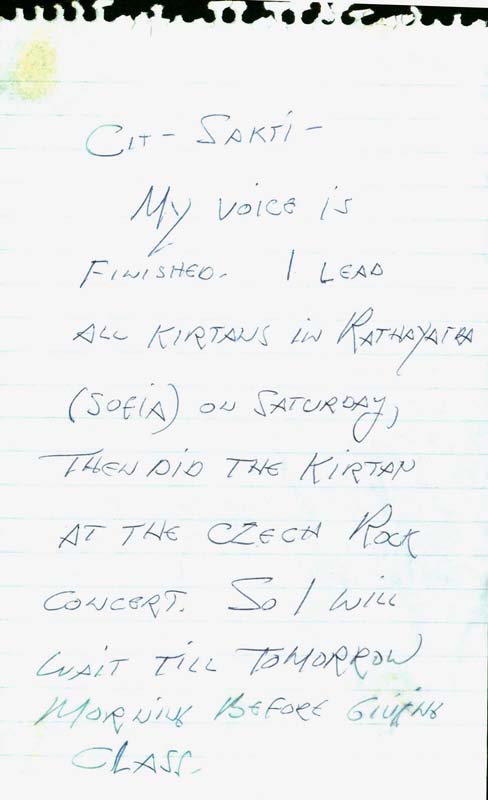 CIT - SAKTI -
MY VOICE IS
FINISHED. I LEAD
ALL KIRTANS IN RATHAYATRA
(SOFIA) ON SATURDAY,
THEN DID THE KIRTAN
AT THE CZECH ROCK
CONCERT. SO I WILL
WAIT TILL TOMORROW
MORNING BEFORE GIVING
CLASS.